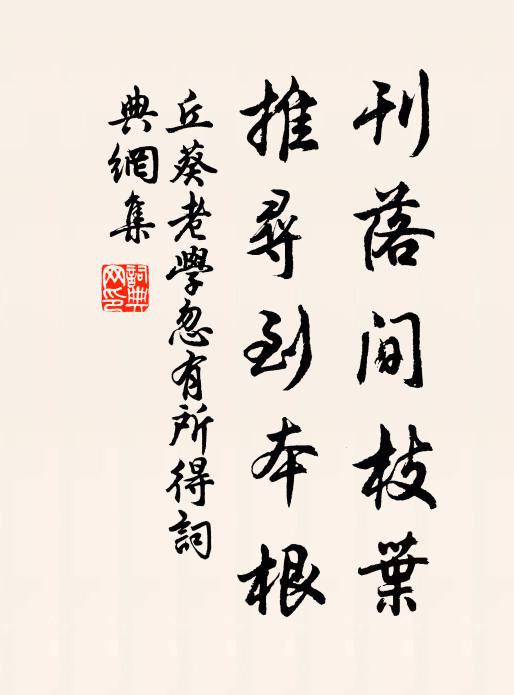 刊落閒枝葉
推尋到本根
丘葵老學忽有所得詞
典網集
詞典網印